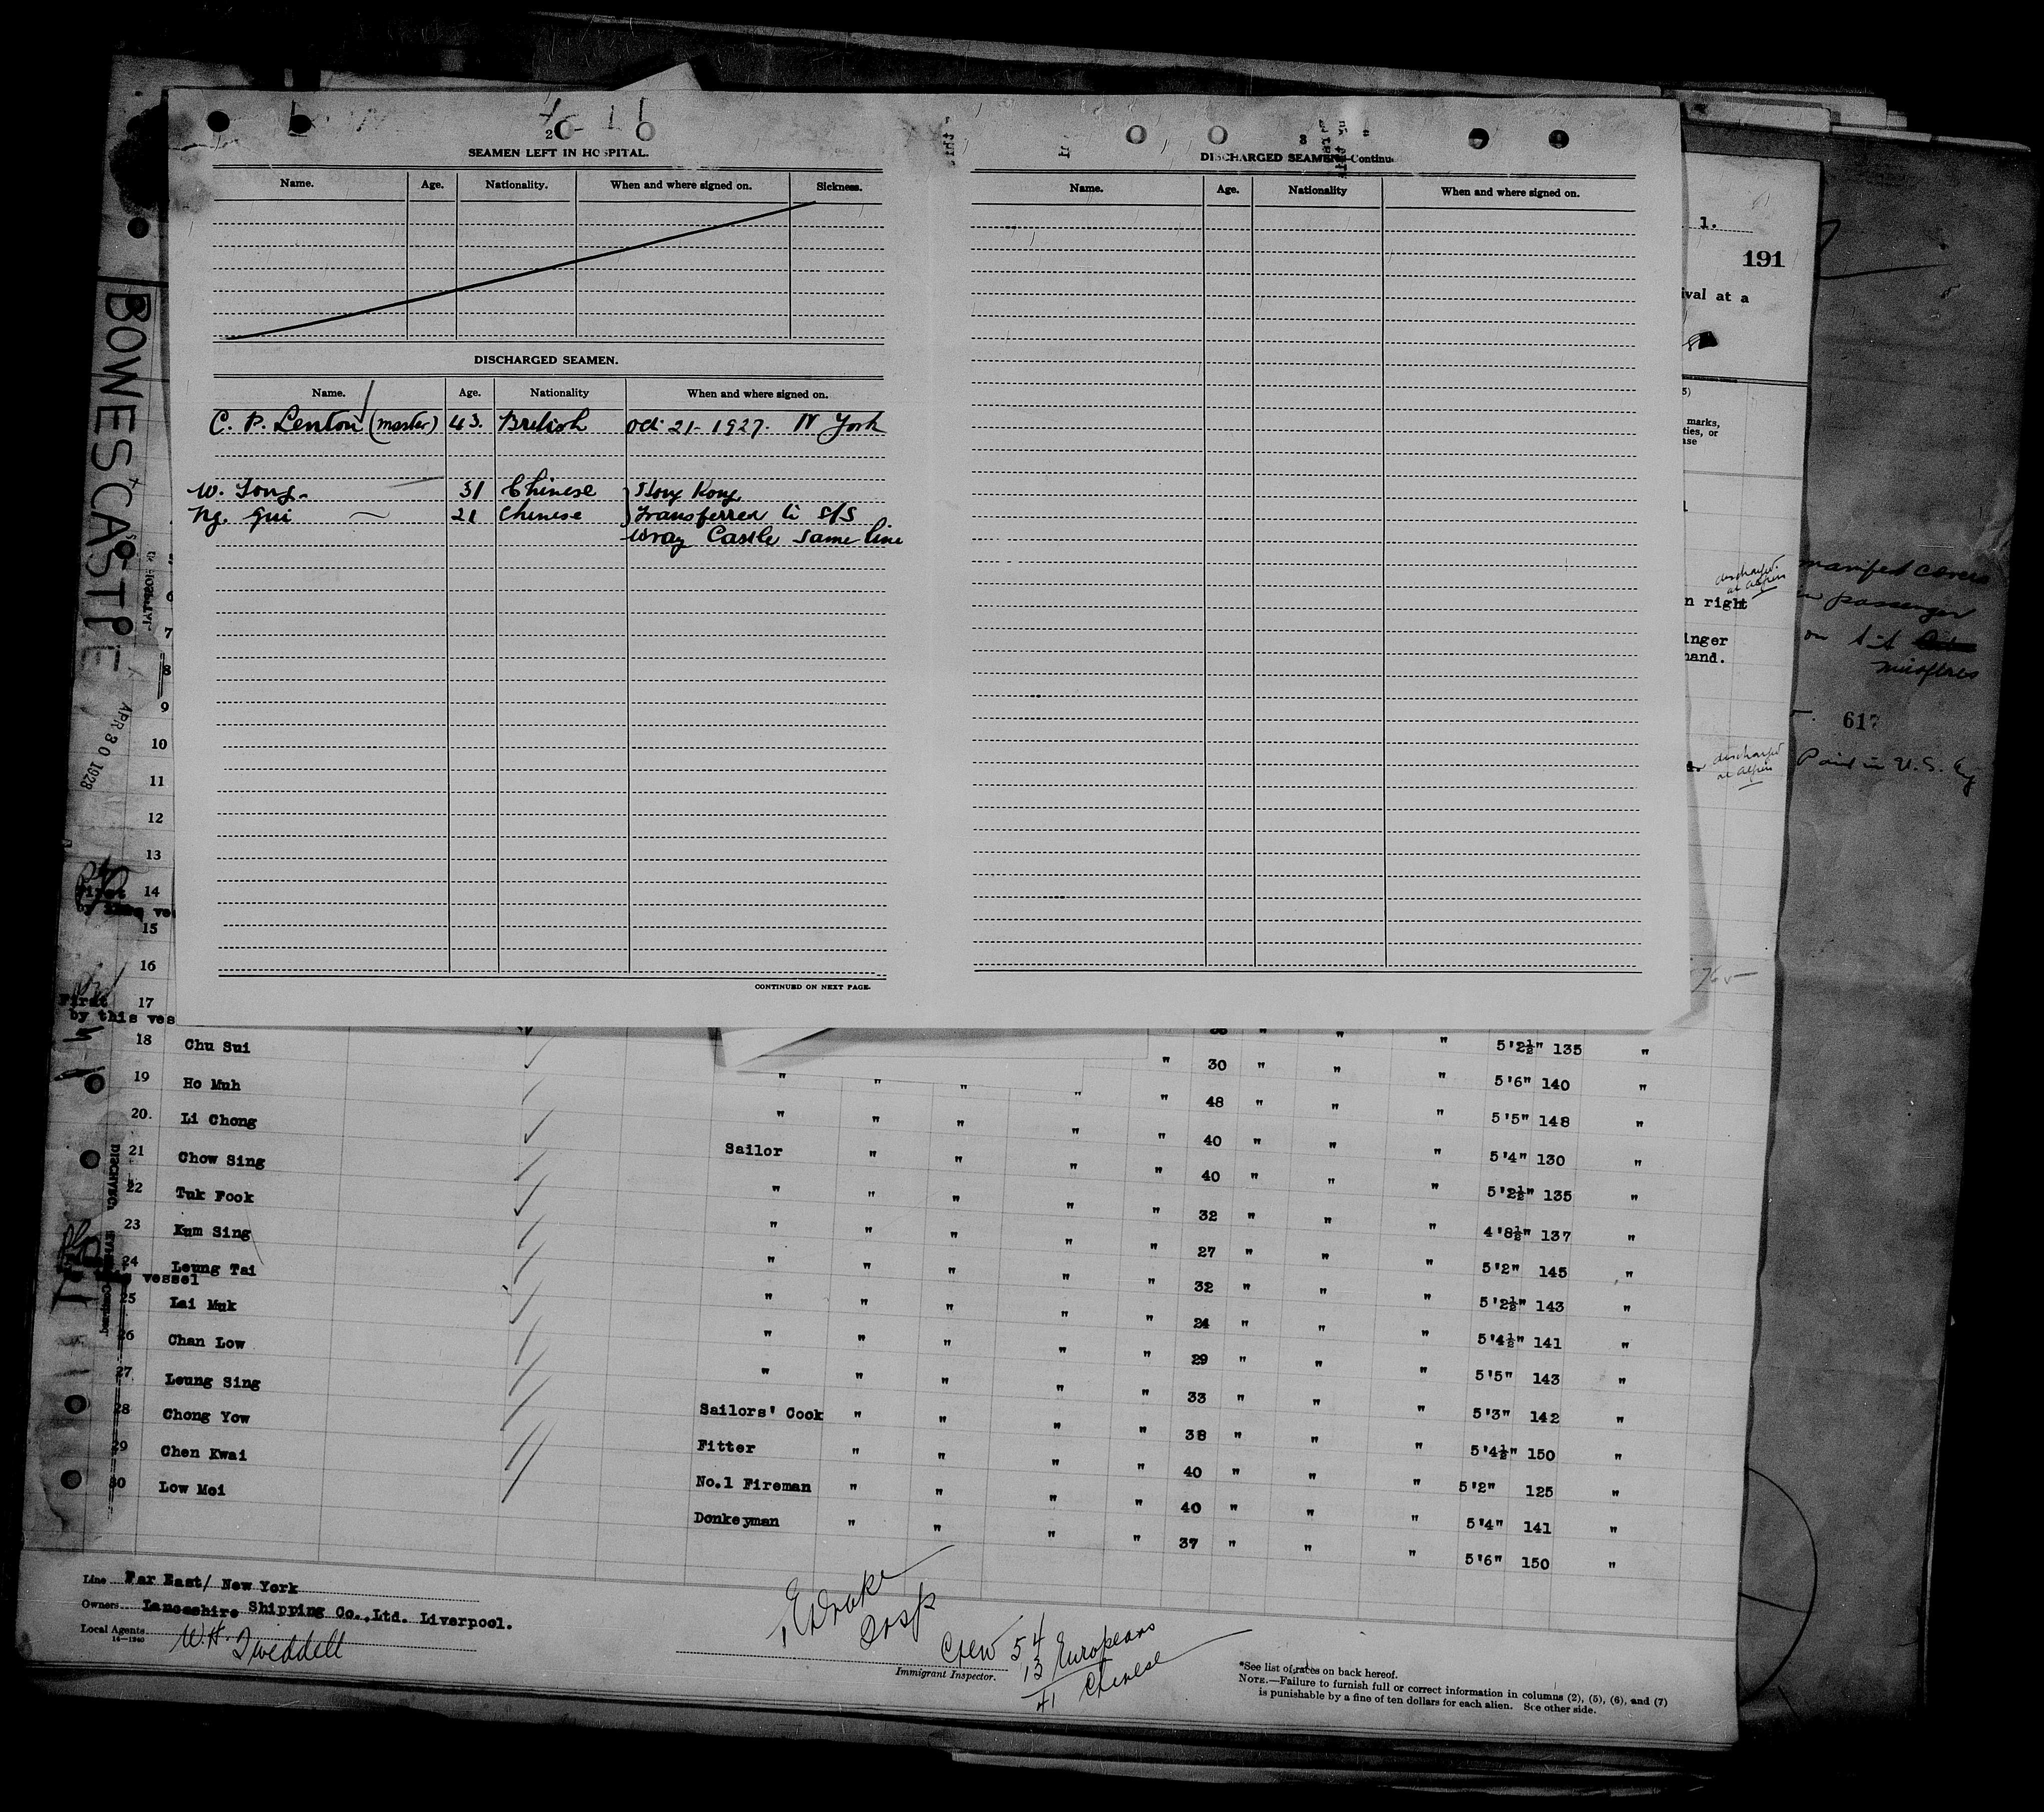 2
SEAMEN LEFT IN HOSPITAL.
Name. Age. Nationality. When and where signed on. Sickness.
DISCHARGED SEAMEN.
Name. Age. Nationality When and where signed on.
C. P. Lenton (master) 43. British Oct 21- 1927. N York
W. Tong. 31 Chinese Hong Kong
Ng. Gui 21 Chinese Transferred to S/S
Wray Castle Same line
CONTINUED ON NEXT PAGE.
3
DISCHARGED SEAMEN—Continu
Name. Age. Nationality When and where signed on.
1.
191
ival at a
5)
marks,
ties, or
ase
discharged
at
n right
inger
hand.
discharged
at
manifest covers
passenger
on
617
Paid in U.S.
BOWES CASTLE
APR 30 1928
7
8
9
10
11
12
13
First 14
15
16
First 17
by this ves
18 Chu Sui " " 5'2½" 135 "
19 Ho Muh " " " " " 30 " " " 5'6" 140 "
20. Li Chong " " " " " 48 " " " 5'5" 148 "
21 Chow Sing Sailor " " " " 40 " " " 5'4" 130 "
22 Tuk Fook " " " " " 40 " " " 5'2½" 135 "
23 Kum Sing " " " " " 32 " " " 4'8½" 137 "
24 Leung Tai " " " " " 27 " " " 5'2" 145 "
vessel
25 Lai Muk " " " " " 32 " " " 5'2½" 143 "
26 Chan Low " " " " " 24 " " " 5'4½" 141 "
27 Leung Sing " " " " " 29 " " " 5'5" 143 "
28 Chong Yow Sailors' Cook " " " " 33 " " " 5'3" 142 "
29 Chen Kwai Fitter " " " " 38 " " " 5'4½" 150 "
30 Low Moi No.1 Fireman " " " " 40 " " " 5'2" 125 "
Donkeyman " " " " 40 " " " 5'4" 141 "
37 " " " 5'6" 150 "
Line Far East/ New York
Owners Lancashire Shipping Co.,Ltd. Liverpool.
Local Agents W.H. Tweddell
14—1240
Crew 54
13 Europeans
41 Chinese
Immigrant Inspector.
*See list of races on back hereof.
NOTE.—Failure to furnish full or correct information in columns (2), (5), (6), and (7)
is punishable by a fine of ten dollars for each alien. See other side.